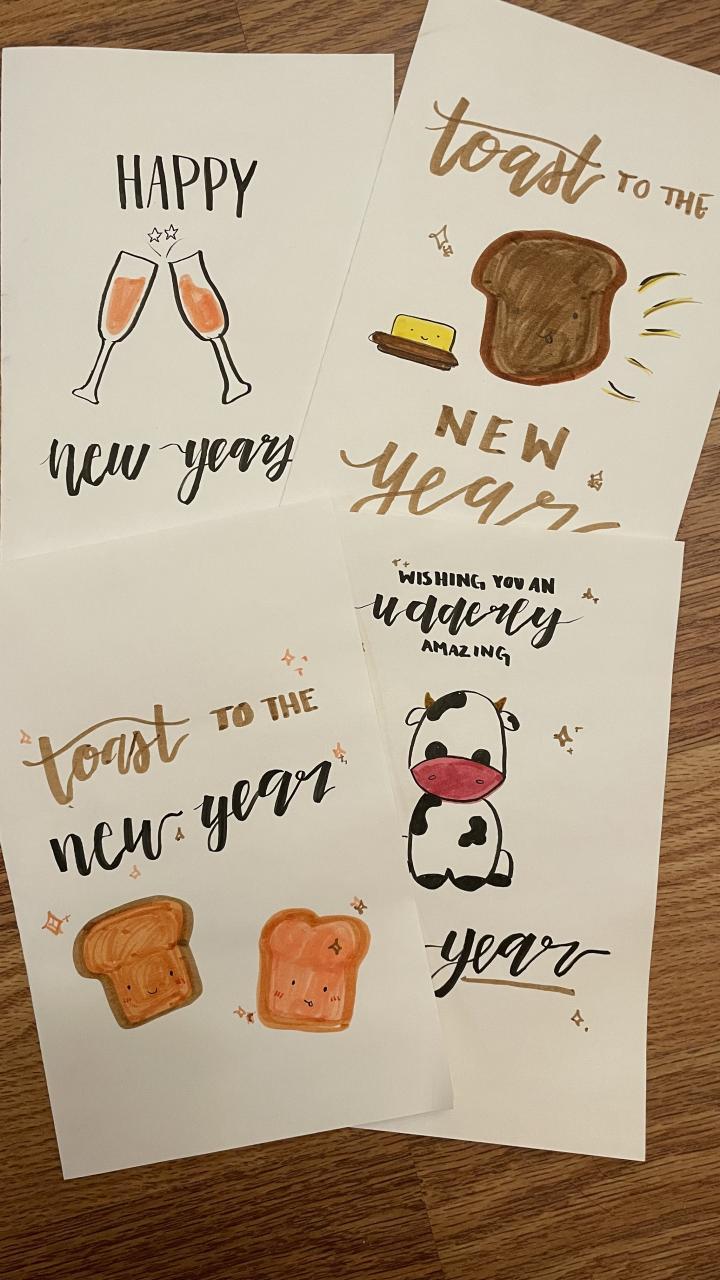 HAPPY
new years
toast TO THE
NEW
year
toast TO THE
new year
WISHING YOU AN
udderly
AMAZING
year